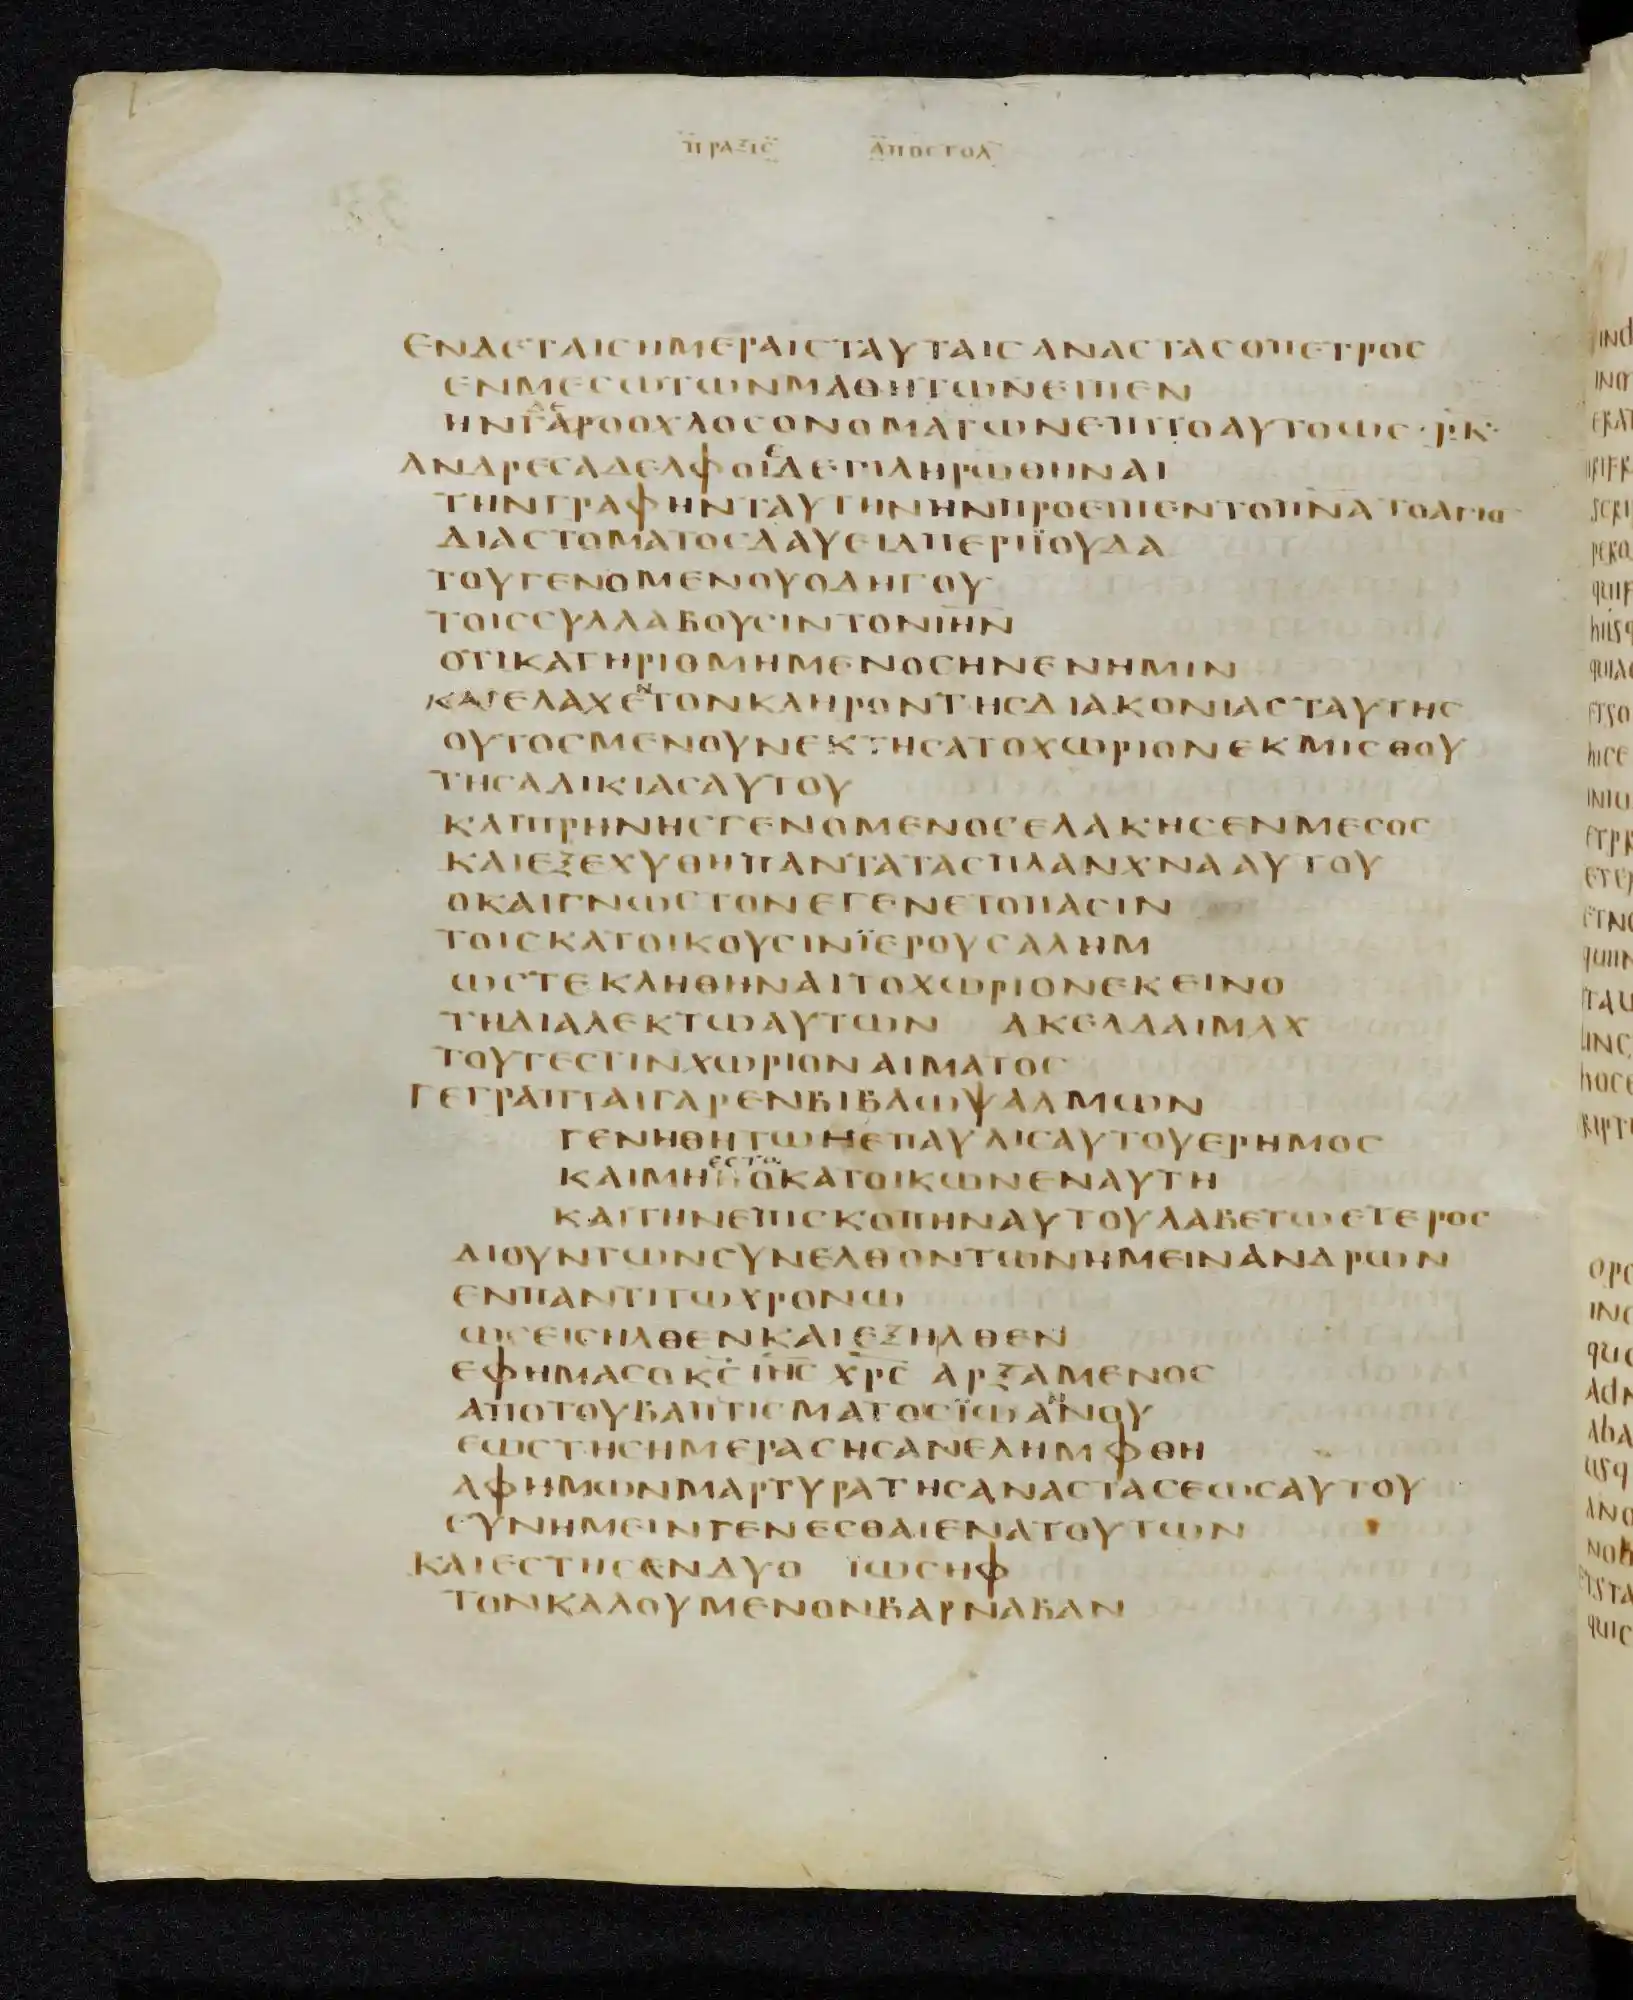 ΠΡΑΞΙϹ ΑΠΟϹΤΟΛ
ΕΝΔΕΤΑΙϹΗΜΕΡΑΙϹΤΑΥΤΑΙϹΑΝΑϹΤΑϹΟΠΕΤΡΟϹ
ΕΝΜΕϹΩΤΩΝΜΑΘΗΤΩΝΕΙΠΕΝ
ΗΝΓΑΡΟΟΧΛΟϹΟΝΟΜΑΤΩΝΕΠΙΤΟΑΥΤΟΩϹ·Ρ̅Κ̅·
ΑΝΔΡΕϹΑΔΕΛΦΟΙΔΕΙΠΛΗΡΩΘΗΝΑΙ
ΤΗΝΓΡΑΦΗΝΤΑΥΤΗΝΗΝΠΡΟΕΙΠΕΝΤΟΠ̅Ν̅Α̅ΤΟΑΓΙΟ
ΔΙΑϹΤΟΜΑΤΟϹΔΑΥΕΙΔΠΕΡΙΪΟΥΔΑ
ΤΟΥΓΕΝΟΜΕΝΟΥΟΔΗΓΟΥ
ΤΟΙϹϹΥΛΛΑΒΟΥϹΙΝΤΟΝΙ̅Η̅Ν̅
ΟΤΙΚΑΤΗΡΙΘΜΗΜΕΝΟϹΗΝΕΝΗΜΙΝ
ΚΑΙΕΛΑΧΕΝΤΟΝΚΛΗΡΟΝΤΗϹΔΙΑΚΟΝΙΑϹΤΑΥΤΗϹ
ΟΥΤΟϹΜΕΝΟΥΝΕΚΤΗϹΑΤΟΧΩΡΙΟΝΕΚΜΙϹΘΟΥ
ΤΗϹΑΔΙΚΙΑϹΑΥΤΟΥ
ΚΑΙΠΡΗΝΗϹΓΕΝΟΜΕΝΟϹΕΛΑΚΗϹΕΝΜΕϹΟϹ
ΚΑΙΕΞΕΧΥΘΗΠΑΝΤΑΤΑϹΠΛΑΝΧΝΑΑΥΤΟΥ
ΟΚΑΙΓΝΩϹΤΟΝΕΓΕΝΕΤΟΠΑϹΙΝ
ΤΟΙϹΚΑΤΟΙΚΟΥϹΙΝΪΕΡΟΥϹΑΛΗΜ
ΩϹΤΕΚΛΗΘΗΝΑΙΤΟΧΩΡΙΟΝΕΚΕΙΝΟ
ΤΗΔΙΑΛΕΚΤΩΑΥΤΩΝ ΑΚΕΛΔΑΙΜΑΧ
ΤΟΥΤΕϹΤΙΝΧΩΡΙΟΝΑΙΜΑΤΟϹ
ΓΕΓΡΑΠΤΑΙΓΑΡΕΝΒΙΒΛΩΨΑΛΜΩΝ
ΓΕΝΗΘΗΤΩΗΕΠΑΥΛΙϹΑΥΤΟΥΕΡΗΜΟϹ
ΕϹΤΩ
ΚΑΙΜΗΟΚΑΤΟΙΚΩΝΕΝΑΥΤΗ
ΚΑΙΤΗΝΕΠΙϹΚΟΠΗΝΑΥΤΟΥΛΑΒΕΤΩΕΤΕΡΟϹ
ΔΙΟΥΝΤΩΝϹΥΝΕΛΘΟΝΤΩΝΗΜΕΙΝΑΝΔΡΩΝ
ΕΝΠΑΝΤΙΤΩΧΡΟΝΩ
ΩϹΕΙϹΗΛΘΕΝΚΑΙΕΞΗΛΘΕΝ
ΕΦΗΜΑϹΟΚ̅Ϲ̅ Ι̅Η̅Ϲ̅ Χ̅Ρ̅Ϲ̅ ΑΡΞΑΜΕΝΟϹ
ΑΠΟΤΟΥΒΑΠΤΙϹΜΑΤΟϹΪΩΑΝΝΟΥ
ΕΩϹΤΗϹΗΜΕΡΑϹΗϹΑΝΕΛΗΜΦΘΗ
ΑΦΗΜΩΝΜΑΡΤΥΡΑΤΗϹΑΝΑϹΤΑϹΕΩϹΑΥΤΟΥ
ϹΥΝΗΜΕΙΝΓΕΝΕϹΘΑΙΕΝΑΤΟΥΤΩΝ
ΚΑΙΕϹΤΗϹΕΝΔΥΟ ΪΩϹΗΦ
ΤΟΝΚΑΛΟΥΜΕΝΟΝΒΑΡΝΑΒΑΝ